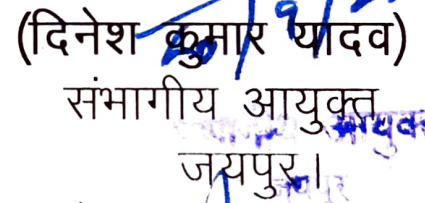 (दिनेश कुमार यादव)
संभागीय आयुक्त
जयपुर।